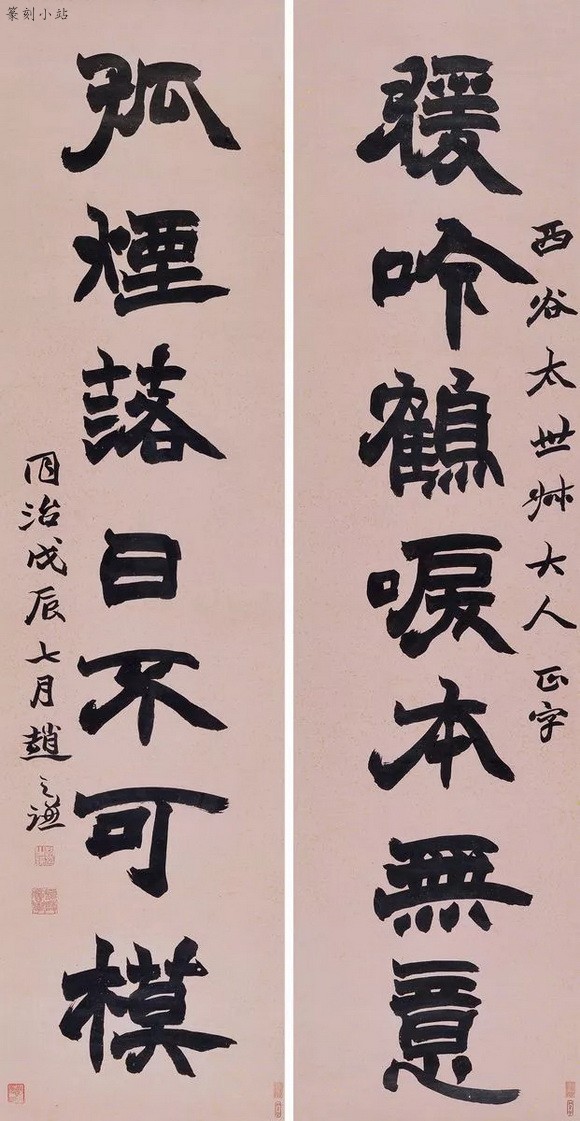 篆刻小站
西谷太世叔大人正字
猨吟鶴唳本無意
孤煙落日不可模
同治戊辰七月趙之謙